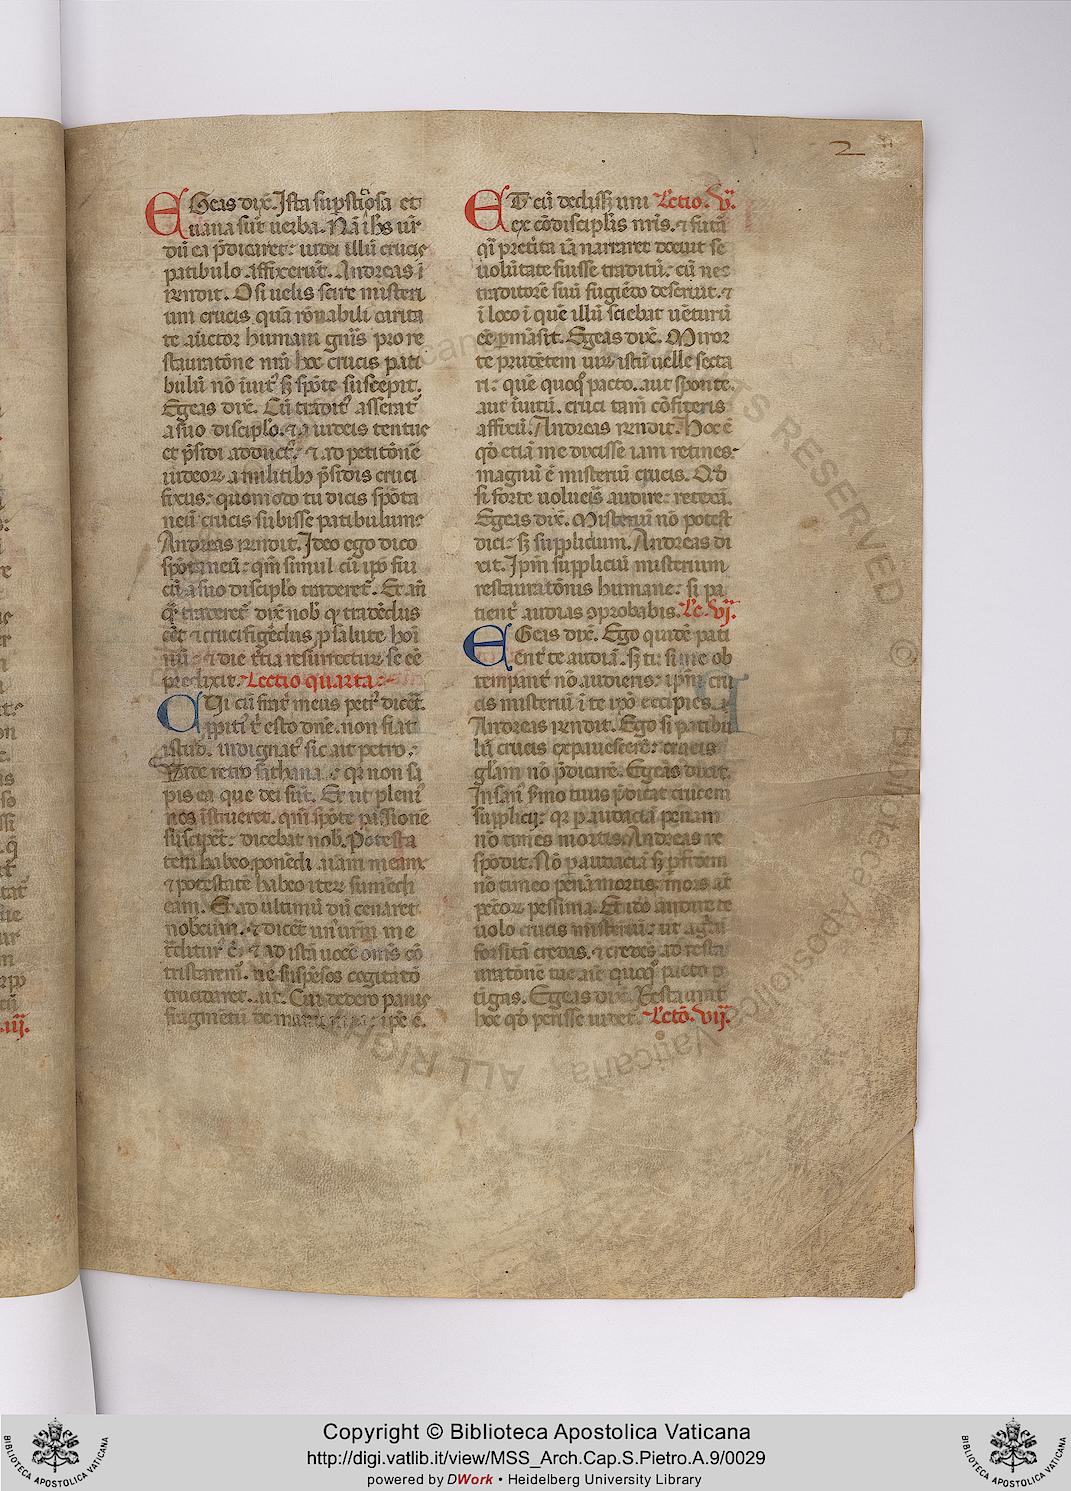 2
EGeas dix̅. Ista sup̅stitiosa et
uana su̅t uerba. Na̅ ih̅s ur̅
du̅ ea p̅dicaret: iudei illu̅ crucis
patibulo affixeru̅t. Andreas
rn̅dit. O si uelis scire misteri
um crucis qua̅ ro̅nabili carita
te auctor humani gn̅is pro re
stauratōne nr̅i hoc crucis pati
bulu̅ no̅ iuit' sʒ spo̅te suscepit.
Egeas dix̅. Cu̅ tradit' asserat'
a suo disciplo. ⁊ a iudeis tentus
et p̅sidi adduct'. ⁊ ad petitōne̅
iudeoꝝ a militib' p̅sidis cruci
fixus: quomodo tu dicis spo̅ta
neu̅ crucis subisse patibulum:
Andreas rn̅dit. Ideo ego dico
spo̅taneu̅: qm̅ simul cu̅ ip̅o fui
cu̅ a suo disciplo traderet'. Et an̅
q̅ traderet' dix̅ nob' ꝙ trade̅dus
e̅et ⁊ crucifige̅dus p salute hoi̅
nu̅. ⁊ die t̅tia resurrectur' se e̅e
predixit. Lectio quarta:
CUi cu̅ frat̅ meus petr' dicet̅.
p̅piti' t̅ esto dn̅e. non fiat
istud. indignat' sic ait petro.
Vade retro sathana: qꝛ non sa
pis ea que dei su̅t. Et ut pleni'
nos i̅strueret. qm̅ spo̅te passione̅
susciperet: dicebat nob'. Potesta
tem habeo pone̅di aīam meam:
⁊ potestate̅ habeo iteꝝ sume̅di
eam. Et ad ultimu̅ du̅ cenaret
nobcum. ⁊ dicet̅ un' ur̅m me
t̅diturus e̅. ⁊ ad ista̅ uoce̅ om̅s co̅
tristarem'. ne suspe̅sos cogitatō
trucidaret. ait. Cui dedero panis
fragme̅tu̅ de manu mea: ip̅e e̅.
ET cu̅ dedissʒ uni Lectio. v̅.
ex co̅disciplis nr̅is. ⁊ futa̅
q̅i pret̅ita ia̅ narraret docuit se
uolu̅tate fuisse traditu̅: cu̅ nec
traditore̅ suu̅ fugie̅do deseruit. ⁊
i̅ loco i̅ que̅ illu̅ sciebat ue̅turu̅
e̅e p̅ma̅sit. Egeas dix̅. Miror
te prude̅tem uiꝝ istu̅ uelle secta
ri: que̅ quoq̅ pacto. aut sponte.
aut i̅uitu̅. cruci tam̅ co̅fiteris
affixu̅. Andreas rn̅dit. Hoc e̅
qđ etia̅ me dixisse iam retines:
magnu̅ e̅ misteriu̅ crucis. Qđ
si forte uolueris audire: retexa̅.
Egeas dix̅. Misteriu̅ no̅ potest
dici: sʒ supplicium. Andreas di
xit. Ip̅m suppliciu̅ misterium
restauratōnis humane: si pa
tient' audias ꝯprobabis. Lc. vj.
EGeas dix̅. Ego quide̅ pati
ent' te audia̅. sʒ tu si me ob
tempant' no̅ audieris: ip̅m cru
cis misteriu̅ i̅ te ip̅o excipies.
Andreas rn̅dit. Ego si patibu
lu̅ crucis expauescere̅: crucis
glia̅m no̅ p̅dicare̅. Egeas dixit.
Insan' s̅mo tuus p̅dicat crucem
supplicij: qꝛ p audacia̅ penam
no̅ times mortis. Andreas re
spo̅dit. No̅ p audacia̅ sʒ p fidem
no̅ timeo pena̅ mortis. mors at̅
pec̅oꝝ pessima. Et ido̅ audire te
uolo crucis misteriu̅: ut agita̅
forsita̅ credas. ⁊ crede̅s ad resta
uratōne̅ tue aīe quoq̅ pacto p
ti̅gas. Egeas dix̅. Restaurat'
hoc qđ perisse uidet'. Lctō. vij.
.iij.
ALL RIGHTS RESERVED © Biblioteca Apostolica Vaticana,
Copyright © Biblioteca Apostolica Vaticana
http://digi.vatlib.it/view/MSS_Arch.Cap.S.Pietro.A.9/0029
powered by DWork • Heidelberg University Library
BIBLIOTECA APOSTOLICA VATICANA
BIBLIOTECA APOSTOLICA VATICANA